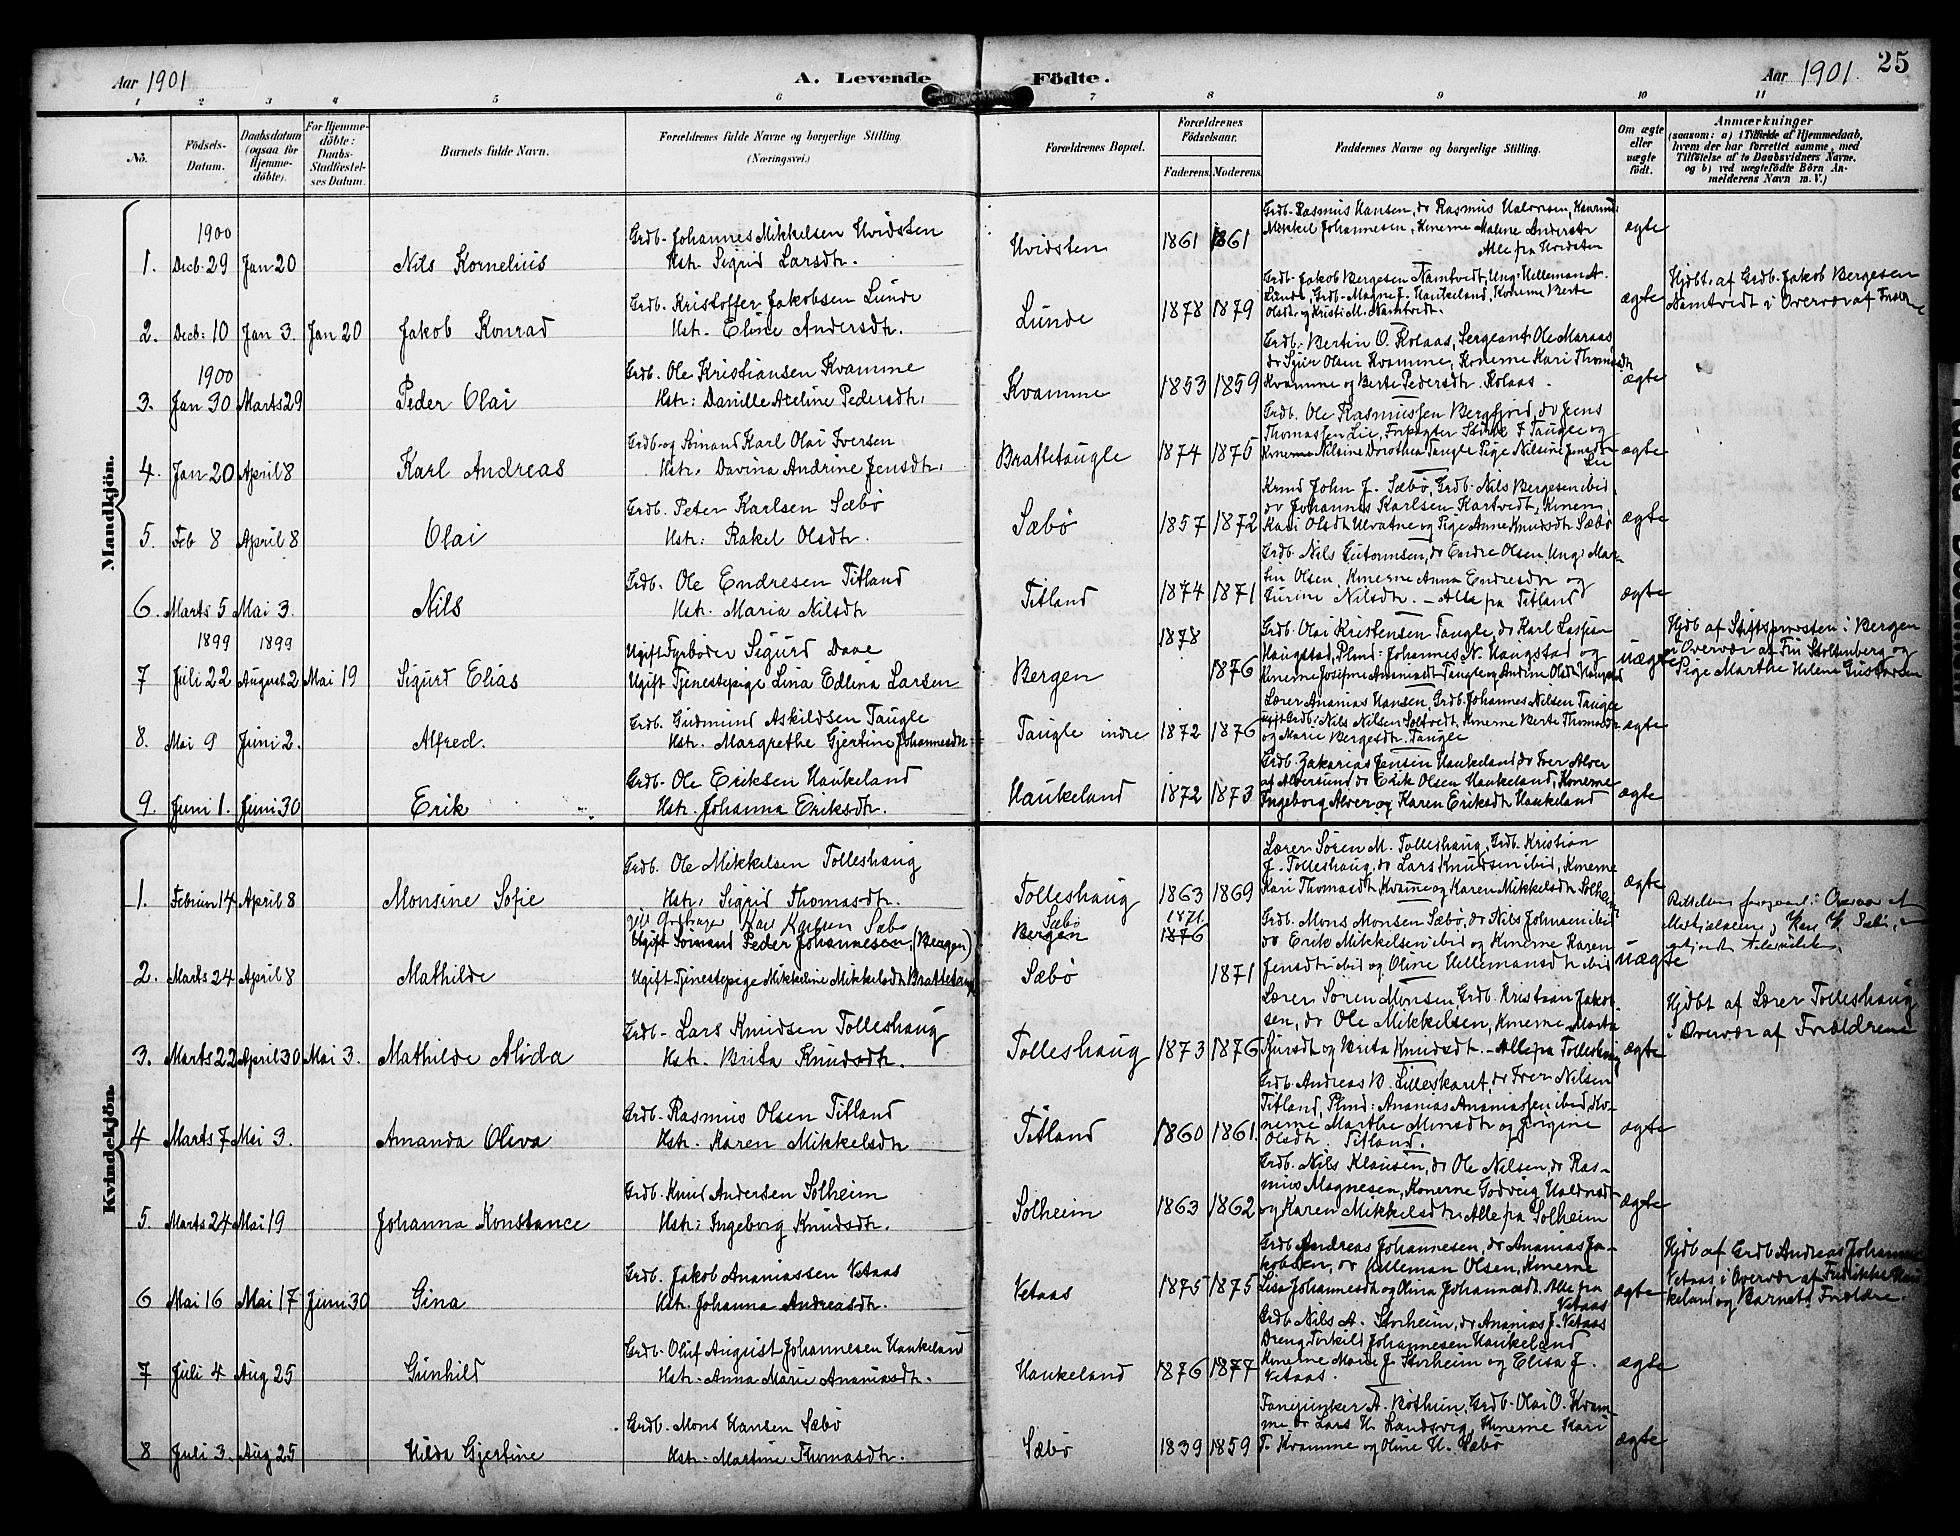 Aar 1901
A. Levende Födte.
Aar 1901.
25
1 2 3 4 5 6 7 8 9 10 11
No.
Födsels-Datum.
Daabsdatum (ogsaa for Hjemme-döbte).
For Hjemme-döbte: Daabs-Stadfæstel-ses Datum.
Barnets fulde Navn.
Forældrenes fulde Navne og borgerlige Stilling.
(Næringsvei.)
Forældrenes Bopæl.
Forældrenes Födselsaar.
Faderens. Moderens.
Faddernes Navne og borgerlige Stilling.
Om ægte eller uægte födt.
Anmærkninger
(saasom: a) i Tilfælde af Hjemmedaab,
hvem der har forrettet samme, med
Tilföielse af to Daabsvidners Navne,
og b) ved uægtefödte Börn An-
melderens Navn m. V.)
Mandkjön.
1900
Grdb. Johannes Mikkelsen Hvidsten
1. Decb. 29 Jan 20 Nils Kornelius Hstr. Sigrid Larsdtr. Hvidsten 1861 1861 ægte
Grdb. Rasmus Hansen, do Rasmus Halvorsen,
Mikkel Johannesen, Konerne Malene Andersdtr
Alle fra Hvidsten
Grdb. Kristoffer Jakobsen Lunde
2. Decb: 10 Jan 3. Jan 20 Jakob Konrad Hstr. Eline Andersdtr. Lunde 1878 1879 ægte
Grdb. Jakob Bergesen Namtvedt, Ung. Helleman A.
Lunde, Grdb. Magne J. Haukeland, Konerne Berte
Olsdtr og Kristi M. Namtvedt.
Hjdbt. af Grdb. Jakob Bergesen
Namtvedt i Overvær af
1900
Grdb. Ole Kristiansen Kvamme
3. Jan 30 Marts 29 Peder Olai Hstr: Danille Axeline Pedersdtr. Kvamme 1853 1859 ægte
Grdb. Bertin O. Kolaas, Sergeant Ole Maraas
do Sjur Olsen Kvamme, Konerne Kari Thomasdtr
Kvamme og Berte Pedersdtr. Kolaas.
Grdb. og Sømand Karl Olai Iversen
4. Jan 20 April 8 Karl Andreas Hstr. Davina Andrine Jensdtr. Brattetaugle 1874 1875 ægte
Grdb. Ole Rasmussen Bergfjord, do Jens
Thomassen Lie, Forpagter F Taugle og
Konerne Nilsine Dorothea Taugle Pige Nilsine Jensdtr
Lie
Grdb. Peter Karlsen Sæbø
5. Feb 8 April 8 Olai Hstr: Rakel Olsdtr. Sæbø 1857 1872 ægte
Krmd John J. Sæbø, Grdb. Nils Bergesen ibid,
do Johannes Karlsen Hartvedt, Konen
Kari Olsdt Ulvatne og Pige Anne Knudsdtr Sæbø
Grdb. Ole Endresen Titland
6. Marts 5 Mai 3. Nils Hstr. Maria Nilsdtr Titland 1874 1871 ægte
Grdb. Nils Gutormsen, do Endre Olsen, Ung. Mar-
tin Olsen, Konerne Anna Endresdtr og
Gurine Nilsdtr. — Alle fra Titland
1899 1899
Ugift Fyrbøder Sigurd Dave 1878
7 Juli 22 August 2 Mai 19 Sigurd Elias Ugift Tjenestepige Lina Edlina Larsen Bergen 1876 uægte
Grdb. Olai Kristensen Taugle, do Karl
Haugstad, Plmd: Johannes N. Haugstad og
Konerne Josefine Ananiasdt Taugle og Andrine Olsdtr Haugstad
Hjdb af Stiftsprovsten i Bergen
i Overvær af Fru Stoltenberg og
Pige Marthe Helene Gustavsen
Grdb. Gudmund Askildsen Taugle
8. Mai 9 Juni 2. Alfred. Hstr. Margrethe Gjertine Johannesdtr Taugle indre 1872 1876 ægte
Lærer Ananias Hansen, Grdb. Johannes Nilsen Taugle
Grdb. Nils Nilsen Soltvedt, Konerne Berte Thomasdtr
og Marie Bergesdtr. Taugle
Grdb. Ole Eriksen Haukeland
9. Juni 1. Juni 30 Erik Hstr. Johanna Eriksdtr. Haukeland 1872 1873 ægte
Grdb. Zakarias Jensen Haukeland do Iver Alver
af Alversund do Erik Olsen Haukeland, Konerne
Ingeborg Alver og Karen Eriksdtr Haukeland
Kvindekjön.
Grdb. Ole Mikkelsen Tolleshaug
1. Februar 14 April 8 Monsine Sofie Hstr. Sigrid Thomasdtr. Tolleshaug 1863 1869 ægte
Lærer Søren M. Tolleshaug, Grdb. Kristian
J. Tolleshaug, do Lars Knudsen ibid, Konerne
Kari Thomasdtr Kvamme og Karen Mikkelsdtr Solheim
Karlsen Sæbø Sæbø 1871
Ugift Sømand Peder Johannesen (Bergen) Bergen 1876
2. Marts 24 April 8 Mathilde Ugift Tjenestepige Mikkeline Mikkelsdtr Brattetaugl Sæbø 1871 uægte
Grdb. Mons Monsen Sæbø, do Nils Johnsen ibid
do Erik Mikkelsen ibid og Konerne Karen
Jensdtr ibid og Oline Hellemansdtr ibid
Grdb. Lars Knudsen Tolleshaug
3. Marts 22 April 30 Mai 3. Mathilde Alida Hstr. Brita Knudsdtr. Tolleshaug 1873 1876 ægte
Lærer Søren Monsen Grdb. Kristian Jakob
sen, do Ole Mikkelsen, Konerne Marta
Sjursdt og Brita Knudsdt. — Alle fra Tolleshaug
Hjdbt af Lærer Tolleshaug
i Overvær af Forældrene
Grdb. Rasmus Olsen Titland
4 Marts 7 Mai 3. Amanda Oliva Hstr. Karen Mikkelsdtr Titland 1860 1861. ægte
Grdb. Andreas B. Lilleskaret, do Iver Nilsen
Titland, Plmd: Ananias Ananiassen ibid, Ko-
nerne Marthe Monsdtr og Jorgine
Olsdtr. Titland.
Grdb. Knud Andersen Solheim
5. Marts 24 Mai 19 Johanna Konstance Hstr: Ingeborg Knudsdtr. Solheim 1863 1862 ægte
Grdb. Nils Klausen, do Ole Nilsen, do Ras-
mus Magnesen, Konerne Godveig
og Karen Mikkelsdtr, Alle fra Solheim
Grdb. Jakob Ananiassen Vetaas
6 Mai 16 Mai 17 Juni 30 Gina Hstr. Johanna Andreasdtr. Vetaas 1875 1875 ægte
Grdb Andreas Johannesen, do Ananias Ja-
kobsen, do Helleman Olsen, Konerne
Lisa Johannesdt og Olina Johannesdt. Alle fra
Vetaas
Hjdb af Grdb Andreas Johannes
Vetaas i Overvær af Fredrikke Hau
keland og Barnets Forældre.
Grdb. Oluf August Johannesen Haukeland
7 Juli 4 Aug 25 Gunhild Hstr. Anna Marie Ananiasdtr. Haukeland 1876 1877 ægte
Grdb Nils A. Storheim, do Ananias J. Vetaas
Dreng Torkild Johannesen Haukeland
Konerne Marie J. Storheim og Elisa J.
Vetaas.
Grdb. Mons Hansen Sæbø
8 Juli 3. Aug 25 Hilda Gjertine Hstr. Martine Thomasdtr. Sæbø 1839 1859 ægte
Fanejunker A. Bøthun, Grdb. Olai O. Kvam-
me do Lars H. Landsvig, Konerne Kari
T. Kvamme og Oline H. Sæbø